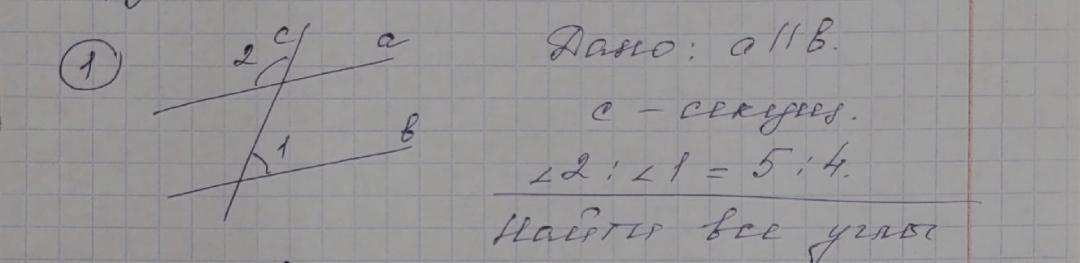 1
2 c a
1 в
Дано: a||в.
c – секущая.
∠2 : ∠1 = 5 : 4.
Найти все углы